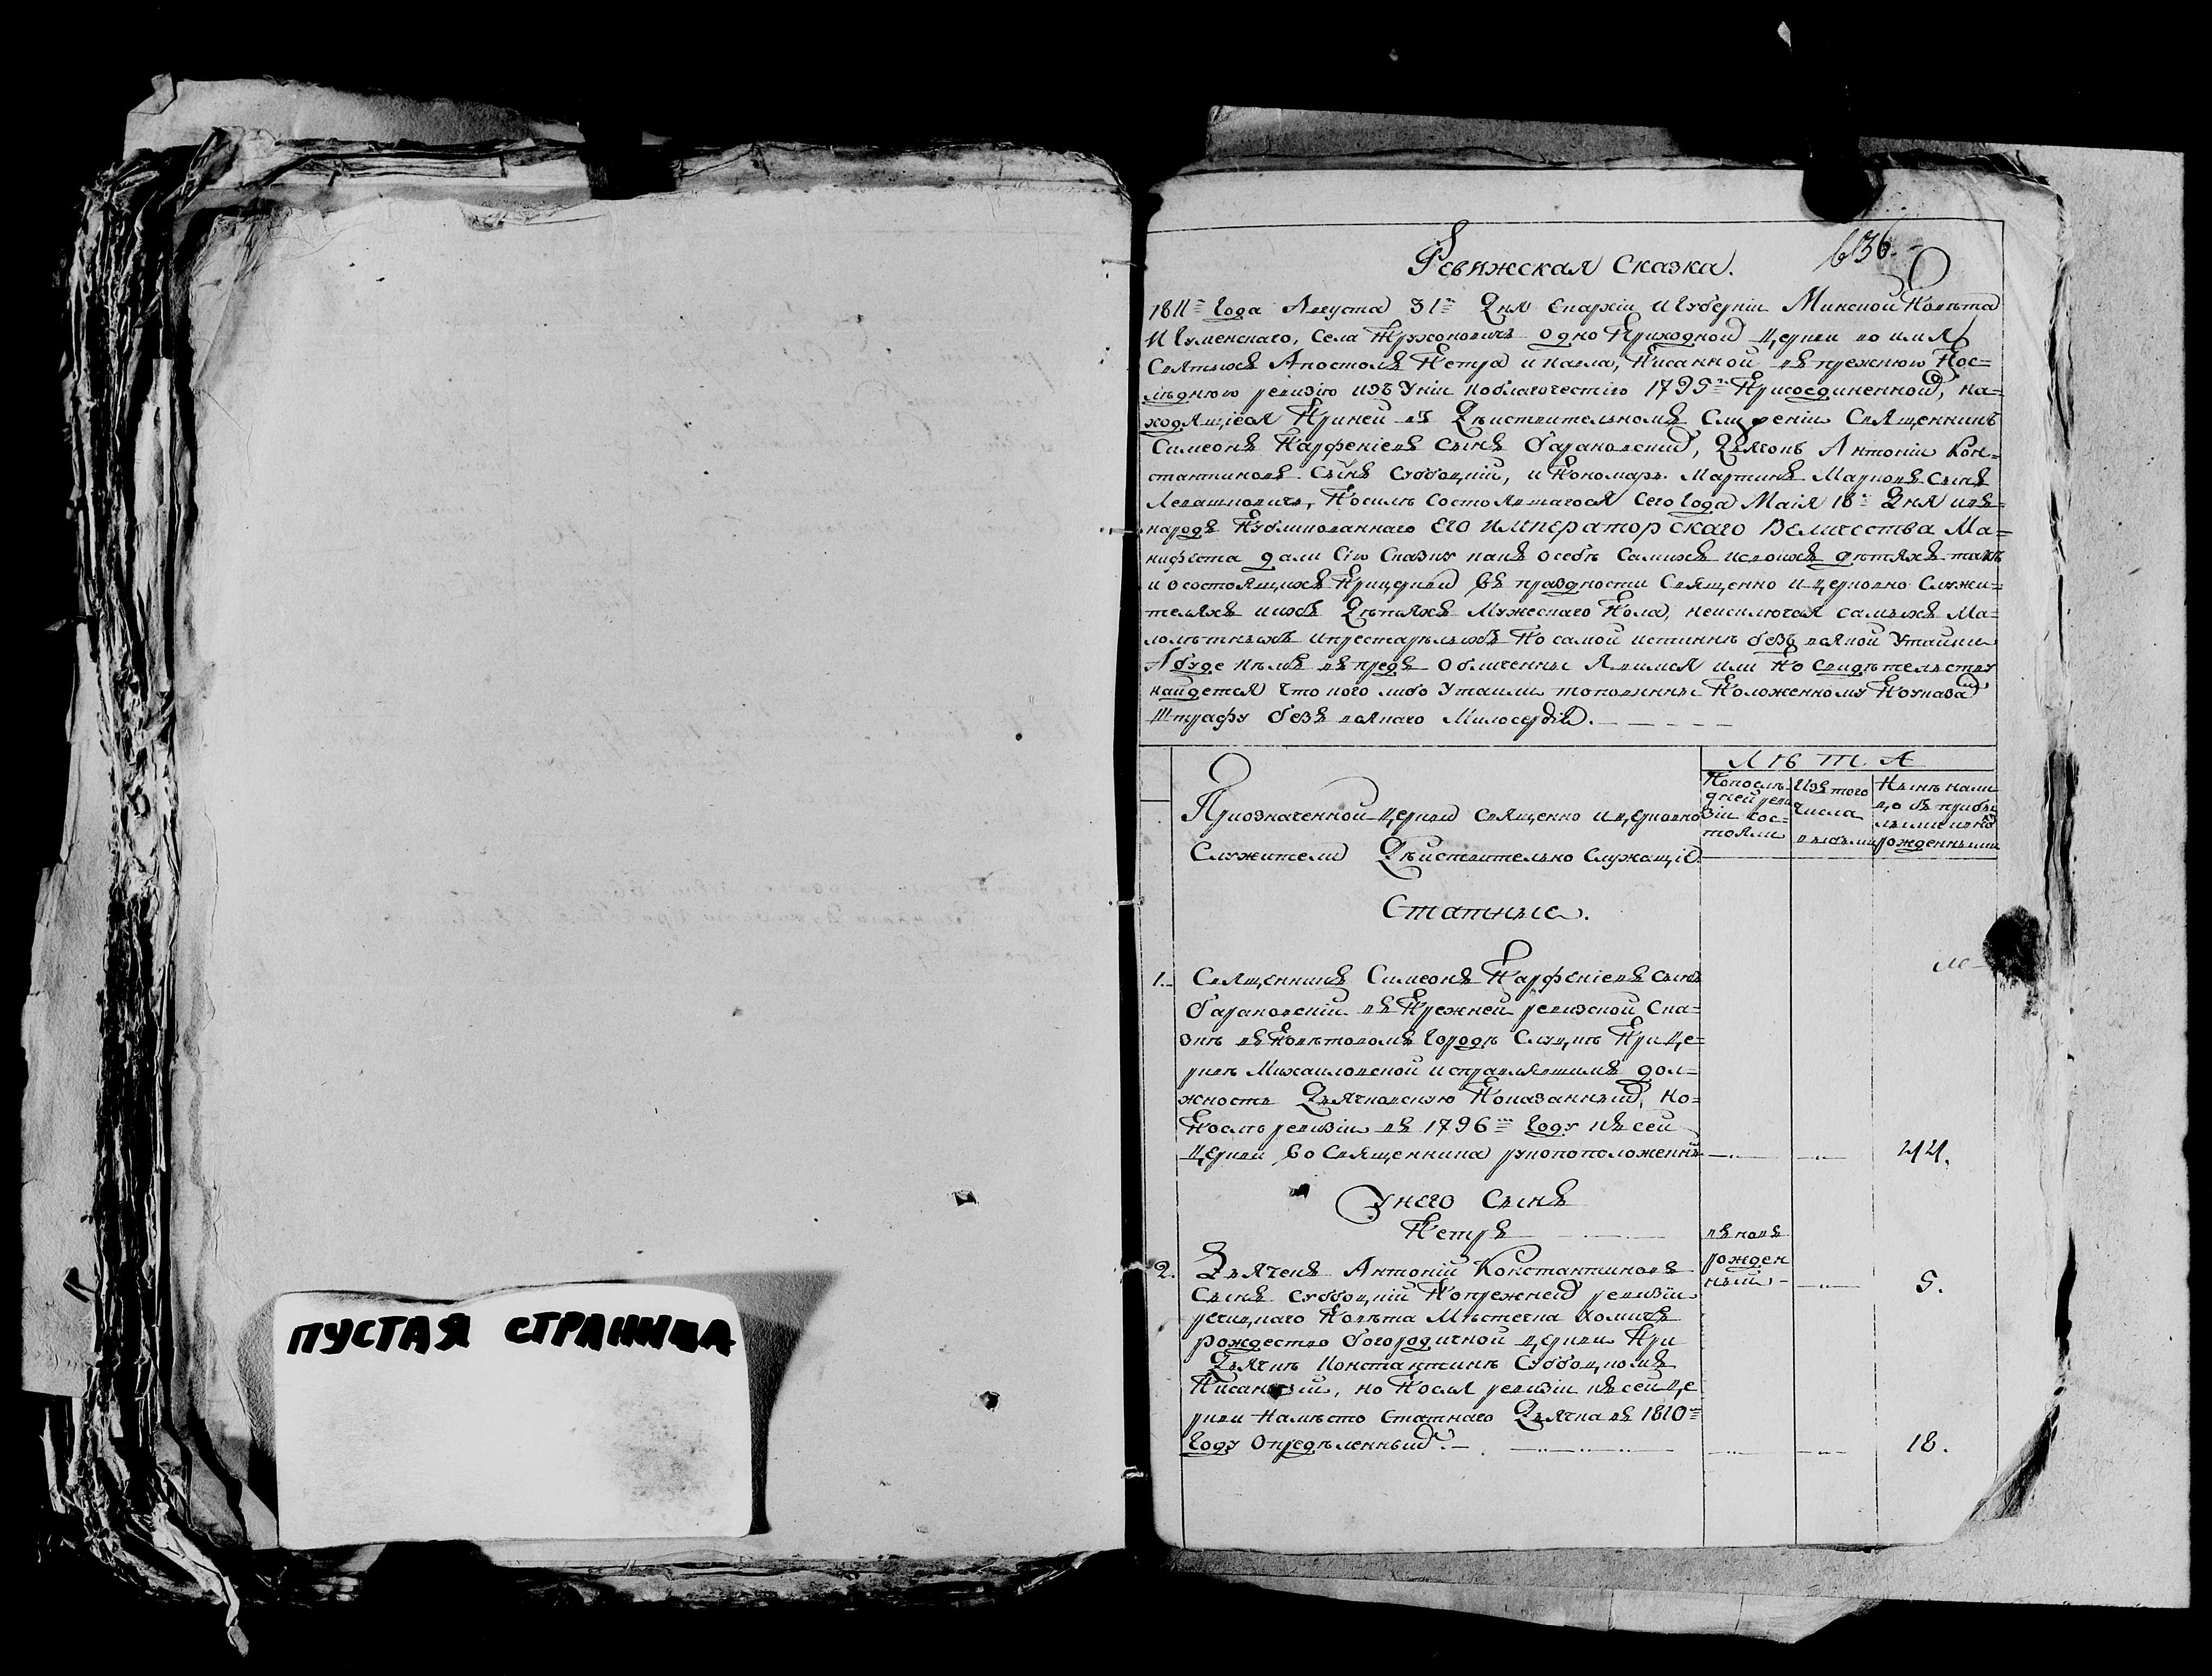 ПУСТАЯ СТРАНИЦА
636.
Ревижская Сказка.
1811го Года Августа 31го Дня Епархіи и Губерніи Минской Повѣта
Игуменскаго, Села одно Приходной Церкви во имя
Святыхъ Апостолъ Петра и павла, Писанной въ прежнюю Пос=
лѣднюю ревизію изъ Уніи ко благочестію 1795го Присоединенной, на=
ходящіеся Приней въ Дѣиствительномъ Служеніи Священникъ
Симеонъ Парфеніевъ Сынъ Барановский, Дьячокъ Антоніи Кон=
стантиновъ Сынъ Субоцкій, и Пономарь Мартинъ Марковъ Сынъ
Левашкевичъ, Посилѣ Состоявшагося Сего Года Маія 18го Дня ивъ
народъ Публикованнаго Его Императорскаго Величества Ма=
нифеста дали Сію Сказку какъ осебѣ Самихъ исвоихъ дѣтяхъ такъ
и о состоящихъ Прицеркви въ праздности Священно и церковно Служи=
теляхъ иихъ Дѣтяхъ Мужескаго Пола, неисключая самыхъ Ма=
лолѣтныхъ ипрестарѣлыхъ По самой истиннѣ безъ всякой Утайки
А буде кѣмъ въ предъ Обличенны Явимся или По Свидѣтельству
найдется что кого либо Утаили топовинны Положенному Поуказам
Штрафу безъ всякаго Милосердія.
Л Ѣ Т А
Приозначенной церкви священно ицерковно
Служители Дѣиствительно Служащіе.
Попослѣ
дней реви
зіи сос=
тояли
Изъ того
числа
выбыли
Нынѣ нали
цо съ прибы
лыми ино
рожденными
Статные.
1. Священникъ Симеонъ Парфеніевъ Сынъ
Барановскіи въ Прежней ревизской Ска=
зкѣ въ Повѣтовомъ Городѣ Слуцкѣ При Це=
рквѣ Михаиловской исправлявшимъ дол=
жность Дьячковскую Показанный, но=
Послѣ ревизіи въ 1796м Году Къ сей
Церкви Во Священника рукоположенъ 44.
Унего Сынъ
Петръ въ новъ
рожден
ный 5.
2. Дьячекъ Антоніи Константиновъ
Сынъ Субоцкіи Попрежней ревизіи
рѣчицкаго Повѣта Мѣстечка Холмеча
рождество Богородичной Церкви При
Дьячкѣ Константинѣ Субоцкомъ
Писанный, но Послѣ ревизіи къ сей це
ркви На мѣсто Статнаго Дьячка въ 1810м
Году Опредѣленный. 18.